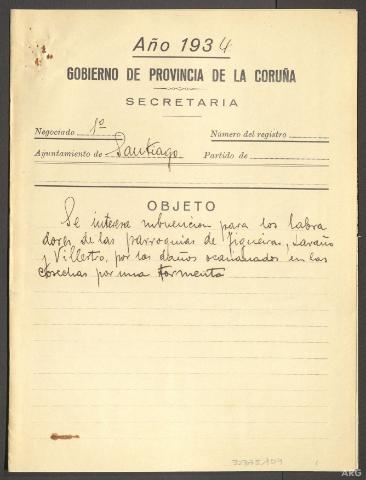 Año 1934
GOBIERNO DE PROVINCIA DE LA CORUÑA
SECRETARIA
Negociado 1º Número del registro
Ayuntamiento de Santiago Partido de
OBJETO
Se interesa subvencion para los labra
dores de las parroquias de Figueiras,
y Villestro, por los daños ocasionados en las
cosechas por una tormenta
ARG